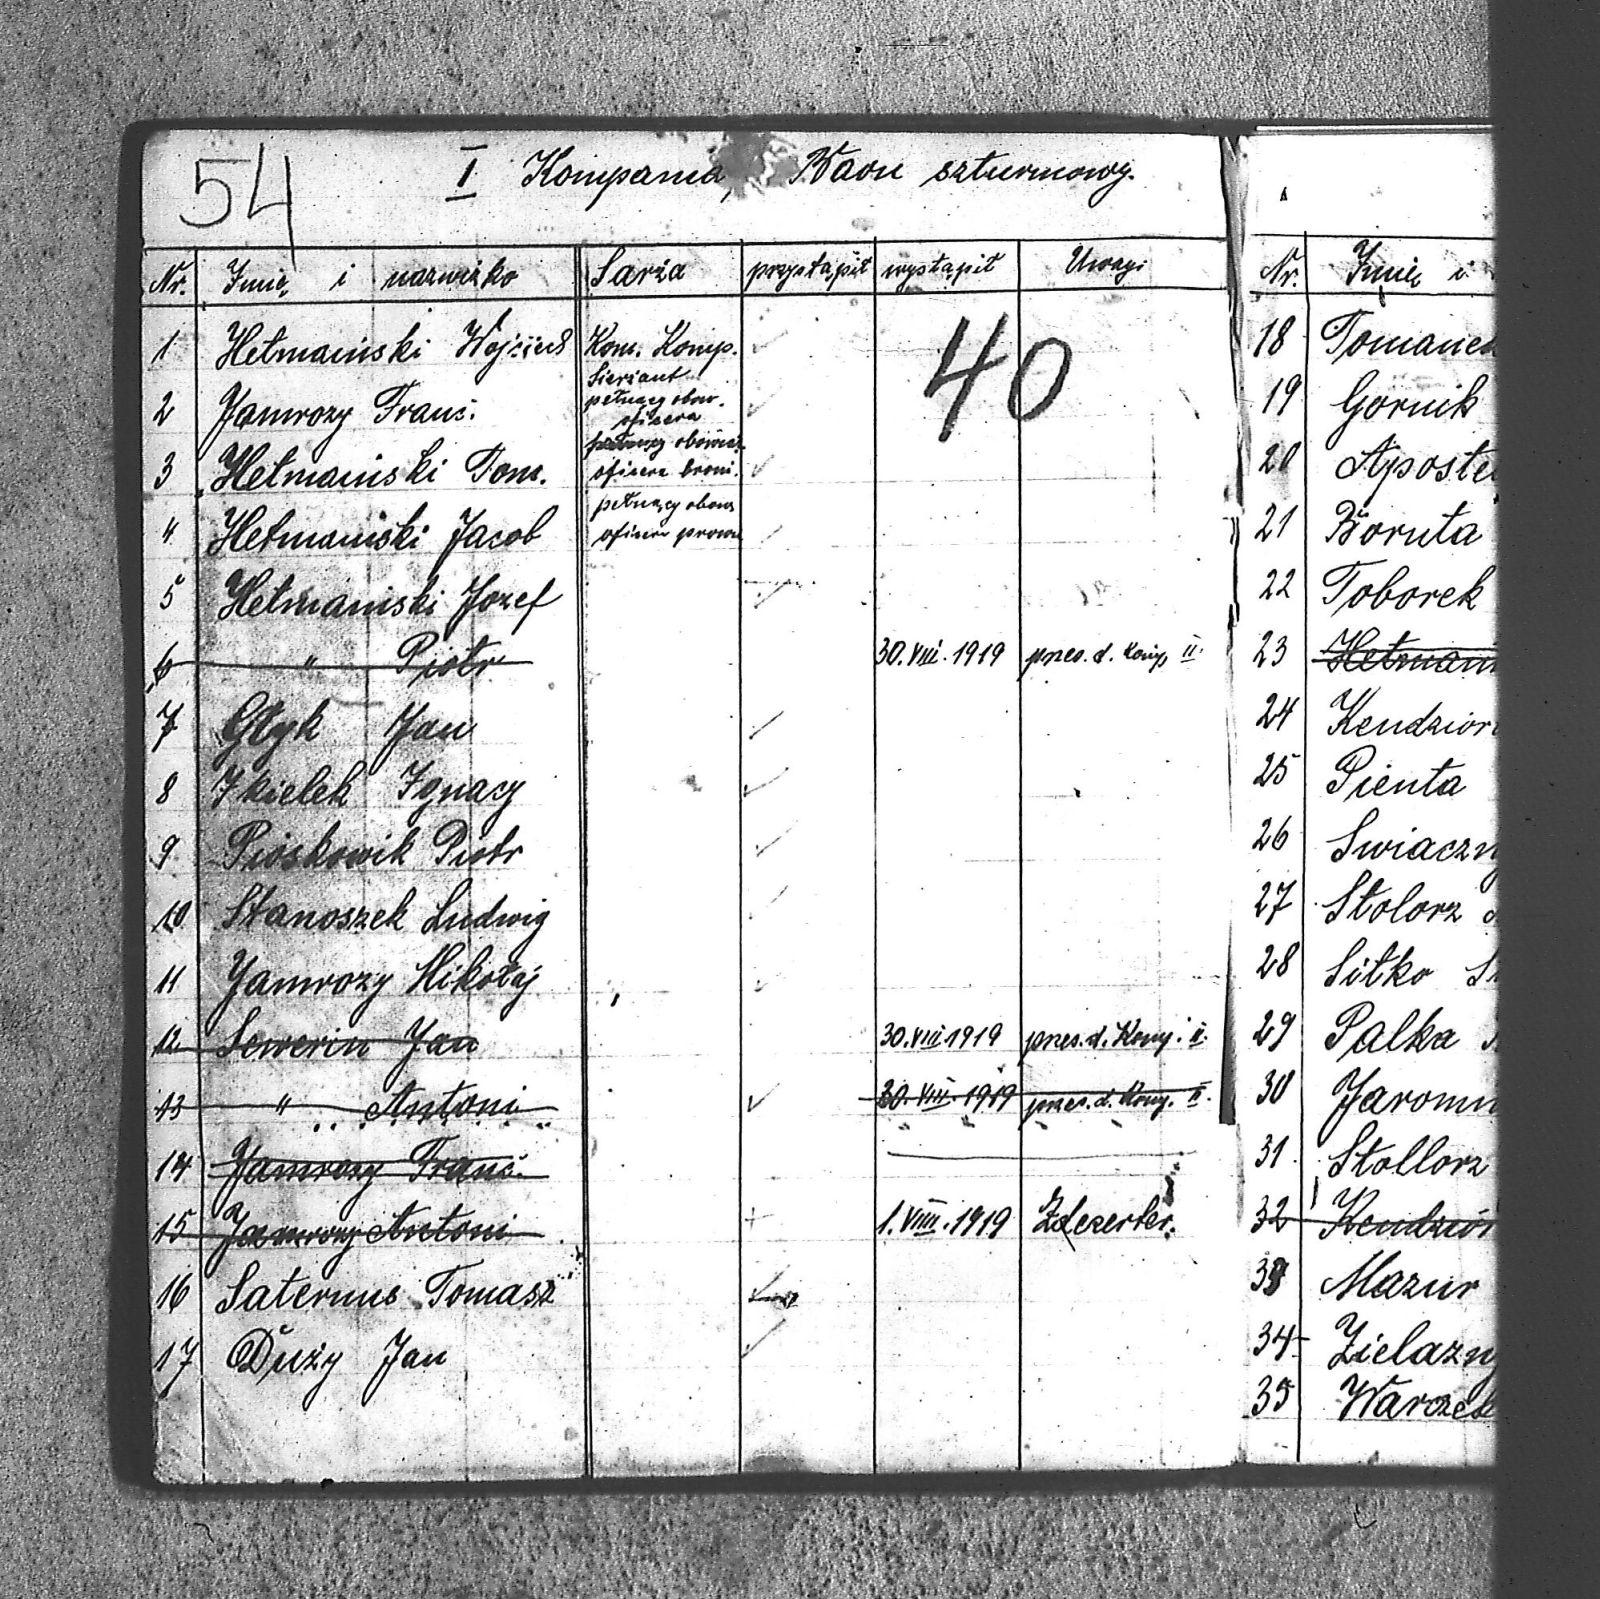 54
I Kompania, Baon szturmowy.
Nr. Imię i nazwisko Sarża przystąpił wystąpił Uwagi
40
1 Hetmański Wojciech Kom. Komp.
Sierżant
2 Jamrozy Franc. pełniący obow.
oficera
3 Hetmański Tom. pełniący obowiąz.
oficera broni.
pełniący obow
4 Hetmański Jacob oficera prow
5 Hetmański Jozef
6 " Piotr 30.VIII.1919 przes. d. Komp. II.
7 Głyk Jan
8 Ikielek Ignacy
9 Pioskowik Piotr
10 Stanoszek Ludwig
11 Jamrozy Mikołaj
12 Sewerin Jan 30.VIII 1919 przes. d. Komp. II.
13 " Antoni 30.VIII.1919 przes. d. Komp. II.
14 Jamrozy Franc.
15 Jamrozy Antoni 1.VIII.1919 Zdezerter.
16 Saternus Tomasz
17 Duży Jan
Nr. Imię i
18 Tomanek
19 Gornik
20 Aposte
21 Boruta
22 Toborek
23 Hetmani
24 Kendzior
25 Pienta
26 Swiaczny
27 Stolorz
28 Sitko
29 Palka
30 Jaromi
31 Stollorz
32 Kendzior
33 Mazur
34 Zielazny
35 Warzek